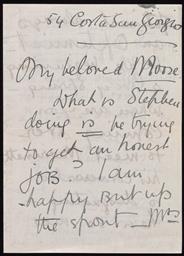 54 Costa San Giorgio
My beloved Moose
What is Stephen
doing is he trying
to get an honest
job I am
happy but up
the spout — Mrs